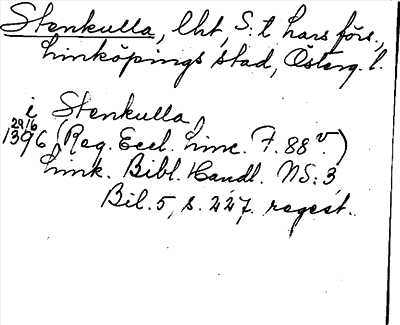 Stenkulla, lht, S:t Lars förs.,
Linköpings stad, Österg. l.
i Stenkulla,
29/6
1396 (Reg. Eccl. Linc. F. 88 v.)
Link. Bibl. Handl. NS: 3,
Bil. 5, s. 227. regest.